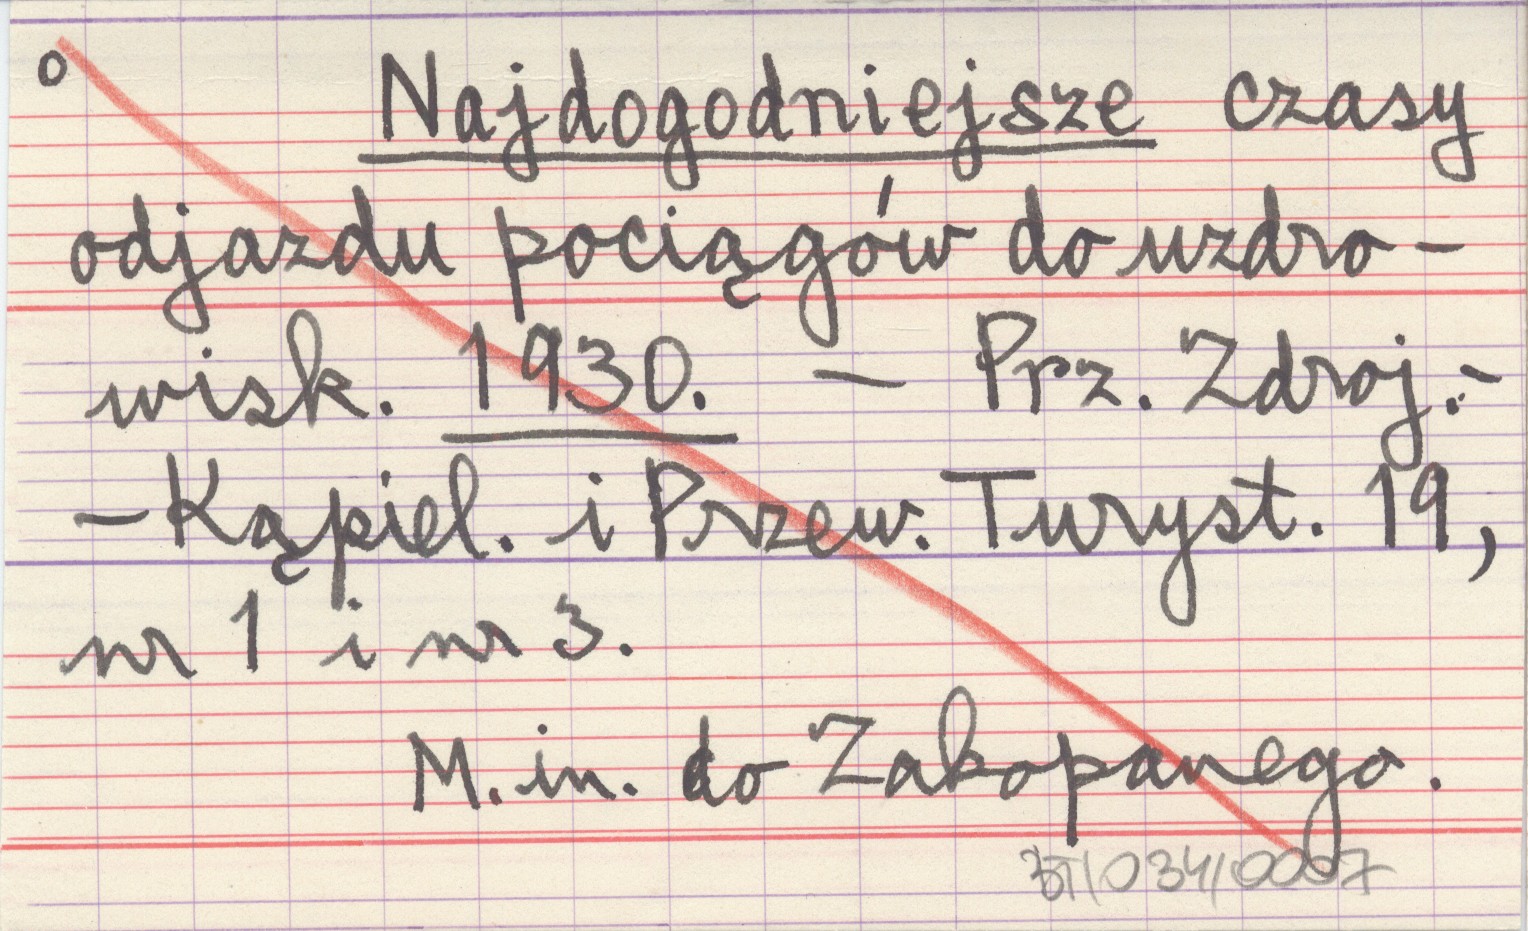 o Najdogodniejsze czasy
odjazdu pociągów do uzdro-
wisk. 1930. — Prz. Zdroj.-
-Kąpiel. i Przew. Turyst. 19,
nr 1 i nr 3.
M. in. do Zakopanego.
BT/034/0007